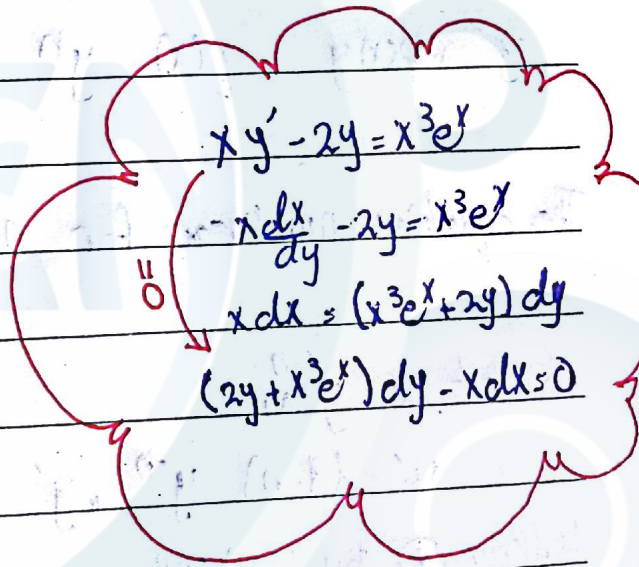 xy' - 2y = x³eˣ
x dx/dy - 2y = x³eˣ
= 0
x dx = (x³eˣ + 2y) dy
(2y + x³eˣ) dy - x dx = 0